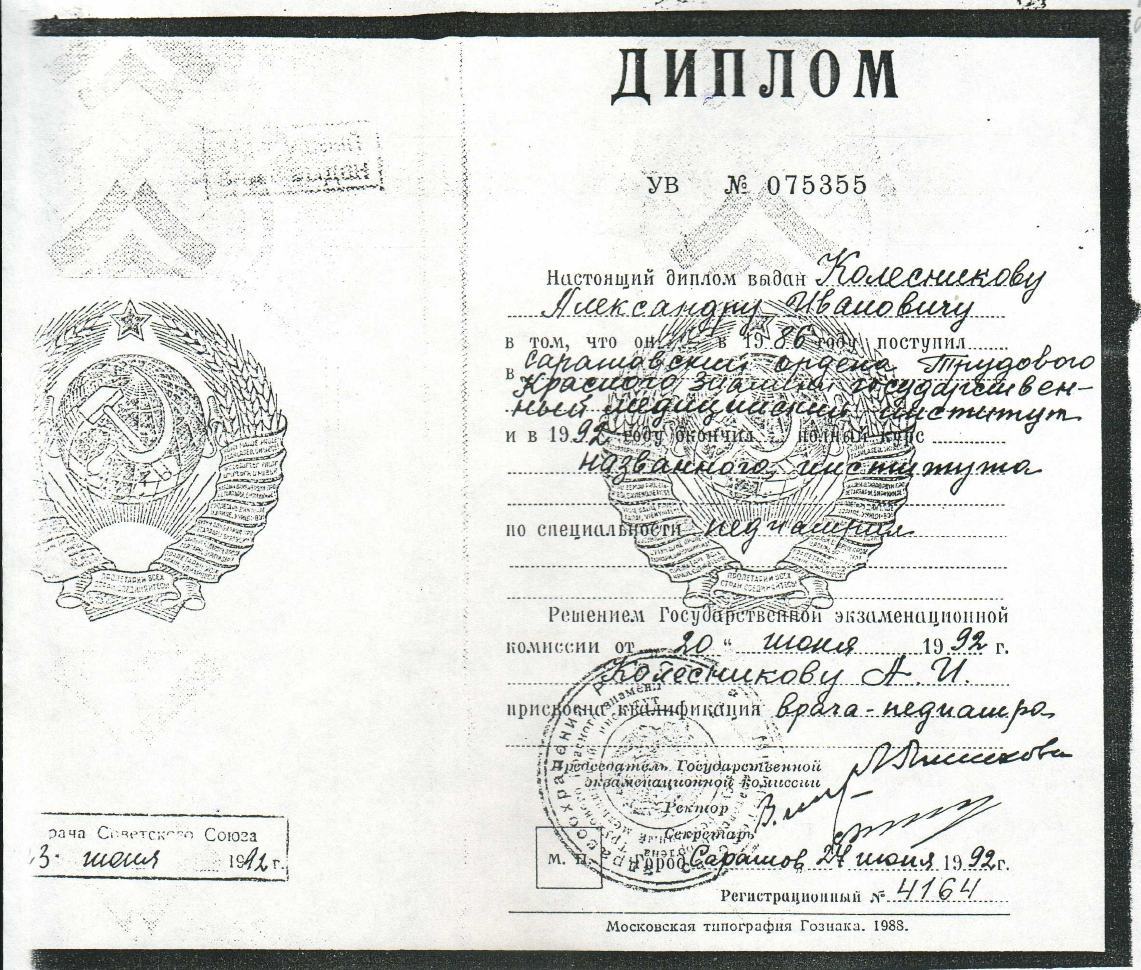 ДИПЛОМ
УВ № 075355
Настоящий диплом выдан Колесникову
Александру Ивановичу
в том, что он в 1986 году поступил
в Саратовский ордена Трудового
Красного Знамени государствен-
ный медицинский институт
и в 1992 году окончил полный курс
названного института
по специальности педиатрия
ПРОЛЕТАРИИ ВСЕХ
СТРАН СОЕДИНЯЙТЕСЬ!
ПРОЛЕТАРИИ ВСЕХ
СТРАН СОЕДИНЯЙТЕСЬ!
Решением Государственной экзаменационной
комиссии от 20 " июня 1992 г.
Колесникову А. И.
присвоена квалификация врача-педиатра
Председатель Государственной
экзаменационной комиссии
Ректор
Секретарь
М. П. Город Саратов 24 июня 1992 г.
Регистрационный № 4164
Московская типография Гознака. 1988.
рача Советского Союза
23. июня 1992 г.